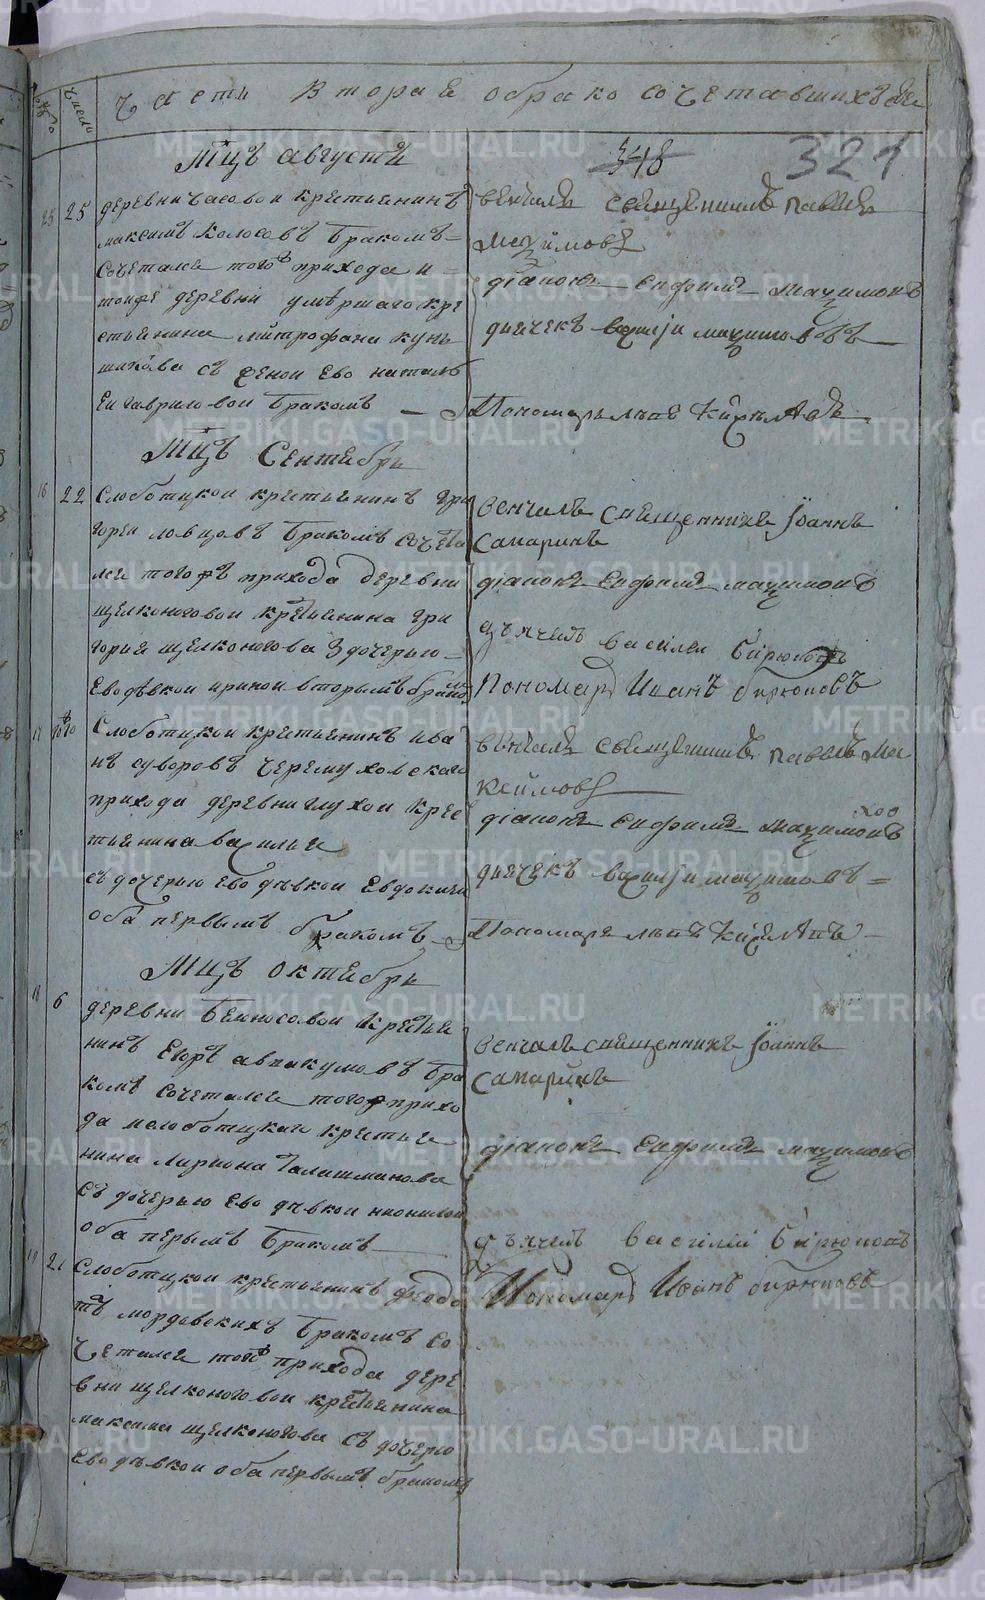 число
Части вторая о бракосочетавшихъся
348
321
Мцъ августъ
25 25 деревни часовои крестьянинъ
максимъ колосовъ бракомъ
сочетался тогожъ прихода и
тоиже деревни умѣршаго кре
стьянина митрофана
съ женои ево наталь
еи гавриловои бракомъ
венчалъ священникъ павелъ
максимовъ
діаконъ евфимъ максимовъ
дьячекъ василеи максимовъ
Пономарь
Мцъ Сентябрь
16 22 Слоботцкои крестьянинъ гри
гореи ловцовъ бракомъ сочета
лся тогожъ прихода деревни
щелконоговои крестьянина гри
горья щелконогова з дочерью
ево дѣвкои ириною вторымъ бракомъ
Венчалъ священникъ Іоаннъ
Самаринъ
діаконъ евфимъ максимовъ
дьячекъ василеи бирюковъ
Пономарь Иванъ бирюковъ
17 Слоботцкои крестьянинъ ива
нъ суворовъ черемуховскаго
прихода деревни глухои крес
тьянина василья
съ дочерью ево дѣвкои евдокиеи
оба первымъ бракомъ
венчалъ священникъ павелъ ма
ксимовъ
діаконъ евфимъ максимовъ
дьячекъ василеи максимовъ
Пономарь
Мцъ октябрь
18 6 деревни белоносовои крестья
нинъ егоръ аввакумовъ бра
комъ сочетался тогожъ прихо
да слоботцкаго крестья
нина лариона талашманова
съ дочерью ево дѣвкои неонилои
оба первымъ бракомъ
венчалъ священникъ Іоаннъ
Самаринъ
діаконъ евфимъ максимовъ
дьячекъ василіи бирюковъ
Пономарь Иванъ бирюковъ
19 21 Слоботцкои крестьянинъ федо
тъ мордовскихъ бракомъ со
четался тогожъ прихода дере
вни щелконоговои крестьянина
максима щелконогова съ дочерю
ево дѣвкои оба первымъ бракомъ
METRIKI.GASO-URAL.RU